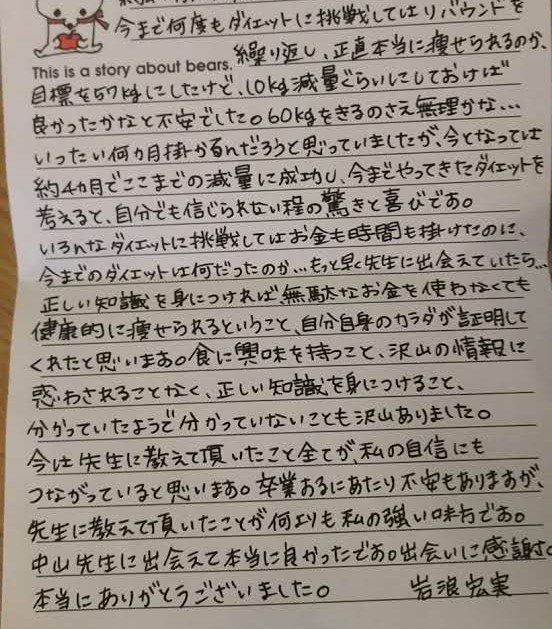 今まで何度もダイエットに挑戦してはリバウンドを
繰り返し、正直本当に痩せられるのか、
This is a story about bears.
目標を57kgにしたけど、10kg減量ぐらいにしておけば
良かったかなと不安でした。60kgをきるのさえ無理かな…
いったい何カ月掛かるんだろうと思っていましたが、今となっては
約4カ月でここまでの減量に成功し、今までやってきたダイエットを
考えると、自分でも信じられない程の驚きと喜びです。
いろんなダイエットに挑戦してはお金も時間も掛けたのに、
今までのダイエットは何だったのか…もっと早く先生に出会えていたら…
正しい知識を身につければ、無駄なお金を使わなくても
健康的に痩せられるということ、自分自身のカラダが証明して
くれたと思います。食に興味を持つこと、沢山の情報に
惑わされることなく、正しい知識を身につけること、
分かっていたようで分かっていないことも沢山ありました。
今は先生に教えて頂いたこと全てが、私の自信にも
つながっていると思います。卒業するにあたり不安もありますが、
先生に教えて頂いたことが何よりも私の強い味方です。
中山先生に出会えて本当に良かったです。出会いに感謝す。
本当にありがとうございました。 岩浪宏実